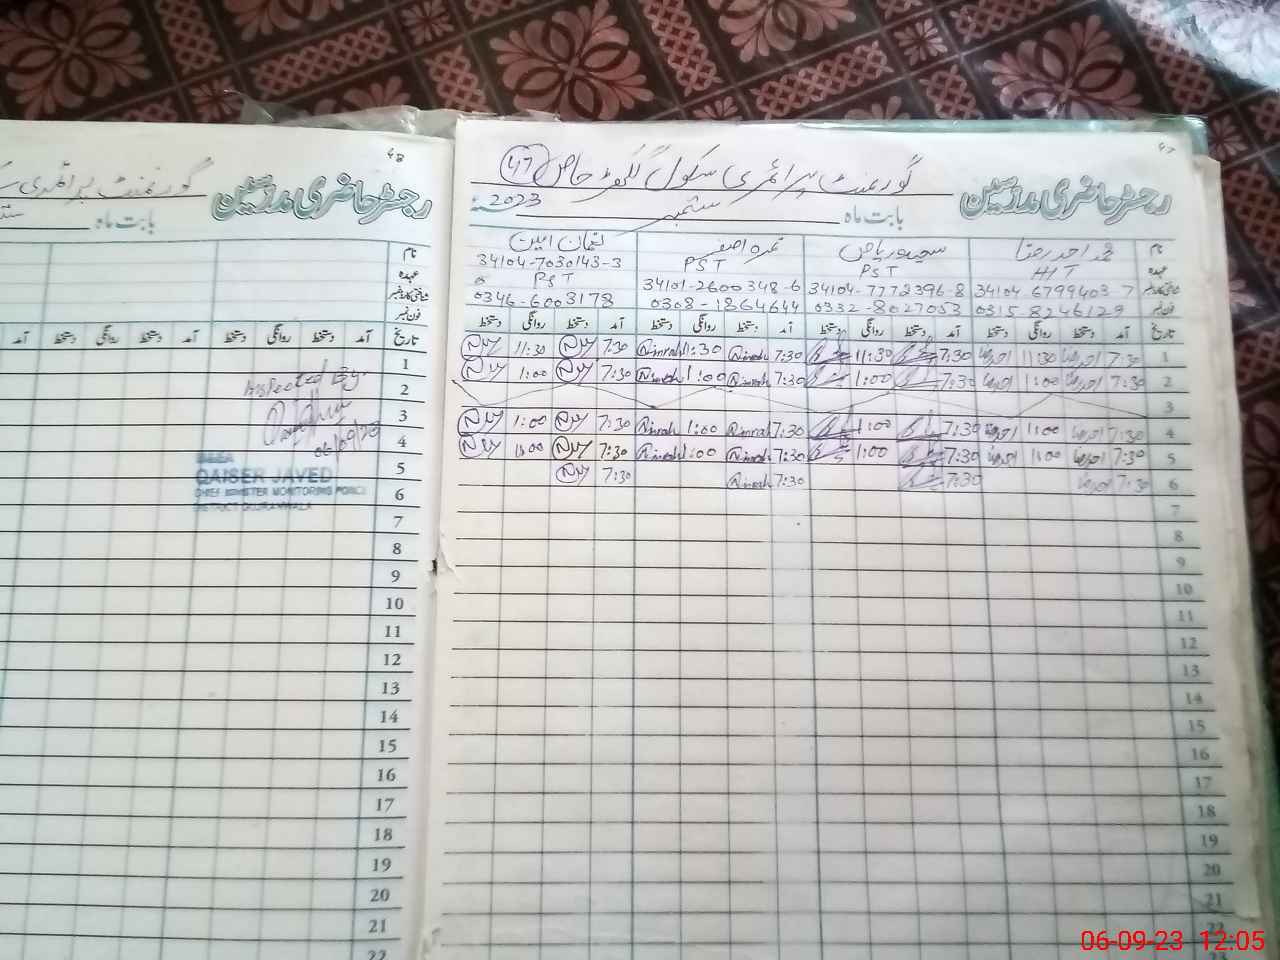 47
رجسٹر حاضری مدرسین
گورنمنٹ پرائمری سکول خاص 47
بابت ماہ ستمبر 2023
نام محمد احمد رضا نمرہ آصف لقمان امین
عہدہ PST PST PST
شناختی کارڈ نمبر 34104-6799403-7 34104-7772396-8 34101-2600348-6 34104-7030143-3
فون نمبر 0315-8246129 0332-8027053 0308-1864644 0346-6003178
تاریخ آمد دستخط روانگی دستخط آمد دستخط روانگی دستخط آمد دستخط روانگی دستخط آمد دستخط روانگی دستخط
1 7:30 11:30 7:30 11:30 7:30 Nimrah 11:30 Nimrah 7:30 11:30
2 7:30 1:00 7:30 1:00 7:30 Nimrah 1:00 Nimrah 7:30 1:00
3
4 7:30 1:00 7:30 1:00 7:30 Nimrah 1:00 Nimrah 7:30 1:00
5 7:30 1:00 7:30 1:00 7:30 Nimrah 1:00 Nimrah 7:30 1:00
6 7:30 7:30 7:30 Nimrah 7:30
7
8
9
10
11
12
13
14
15
16
17
18
19
20
21
22
23
48
رجسٹر حاضری مدرسین
گورنمنٹ پرائمری
بابت ماہ
نام
عہدہ
شناختی کارڈ نمبر
فون نمبر
تاریخ آمد دستخط روانگی دستخط آمد دستخط روانگی دستخط آمد
1
2
3
4
5
6
7
8
9
10
11
12
13
14
15
16
17
18
19
20
21
22
Inspected By:
06/09/23
QAISER JAVED
CHIEF MINISTER MONITORING FORCE
DISTRICT GUJRANWALA
06-09-23 12:05